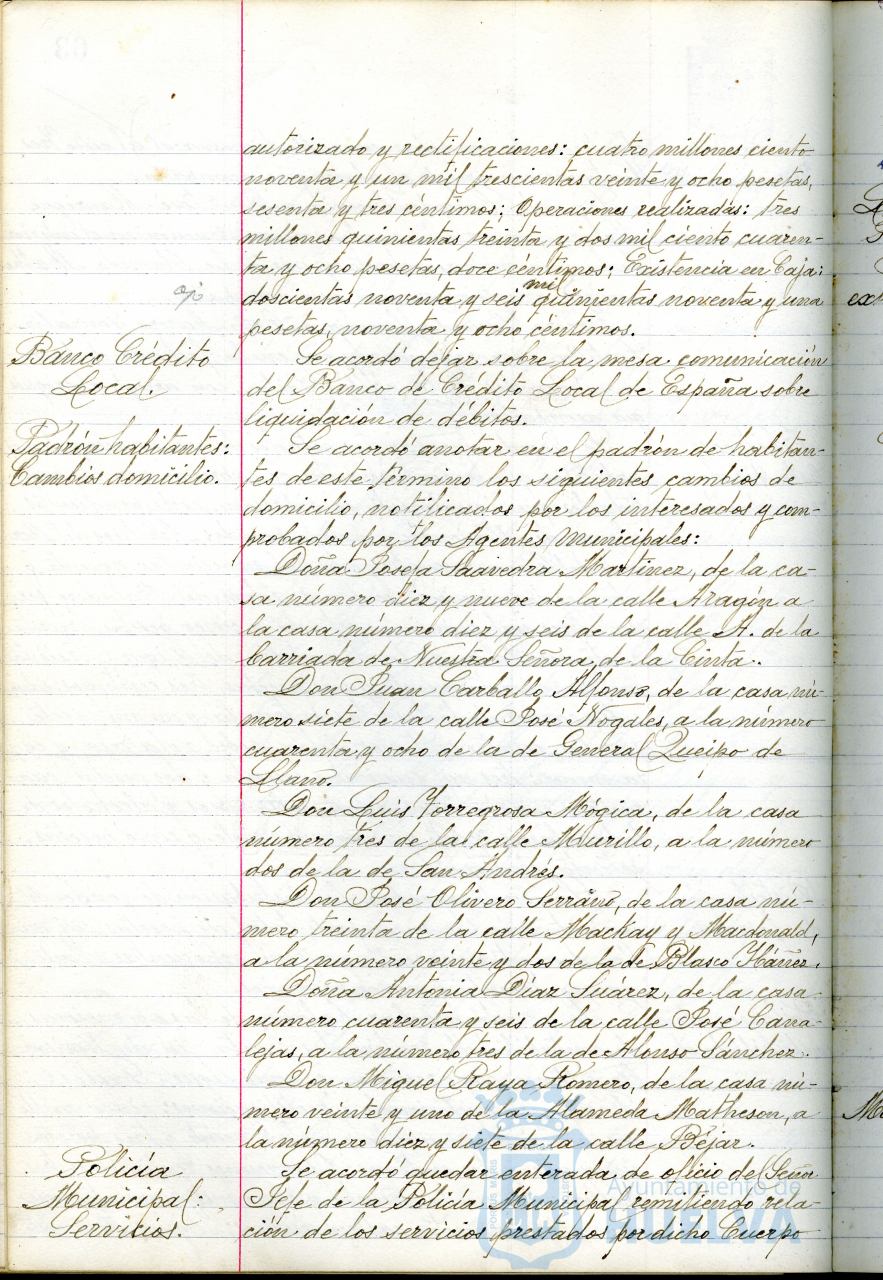 autorizado y rectificaciones: cuatro millones ciento
noventa y un mil trescientas veinte y ocho pesetas,
sesenta y tres céntimos; Operaciones realizadas: tres
millones quinientas treinta y dos mil ciento cuaren-
ta y ocho pesetas, doce céntimos; Existencia en Caja:
mil
doscientas noventa y seis quinientas noventa y una
pesetas, noventa y ocho céntimos.
Banco Crédito
Local.
Se acordó dejar sobre la mesa comunicación
del Banco de Crédito Local de España sobre
liquidación de débitos.
Padrón habitantes:
Cambios domicilio.
Se acordó anotar en el padrón de habitan-
tes de este término los siguientes cambios de
domicilio, notificados por los interesados y com-
probados por los Agentes Municipales:
Doña Josefa Saavedra Martinez, de la ca-
sa número diez y nueve de la calle Aragón a
la casa número diez y seis de la calle A. de la
barriada de Nuestra Señora de la Cinta.
Don Juan Carballo Alfonso, de la casa nú-
mero siete de la calle José Nogales, a la número
cuarenta y ocho de la de General Queipo de
Llano.
Don Luis Torregrosa Mógica, de la casa
número tres de la calle Murillo, a la número
dos de la de San Andrés.
Don José Olivero Serrano, de la casa nú-
mero treinta de la calle Mackay y Macdonald,
a la número veinte y dos de la de Blasco Ibáñez.
Doña Antonia Diaz Suárez, de la casa
número cuarenta y seis de la calle José Cana-
lejas, a la número tres de la de Alonso Sánchez.
Don Miguel Raya Romero, de la casa nú-
mero veinte y uno de la Alameda Matheson, a
la número diez y siete de la calle Béjar.
Policía
Municipal:
Servicios.
Se acordó quedar enterada de oficio del Señor
Jefe de la Policía Municipal remitiendo rela-
ción de los servicios prestados por dicho Cuerpo
Ayuntamiento de
HUELVA